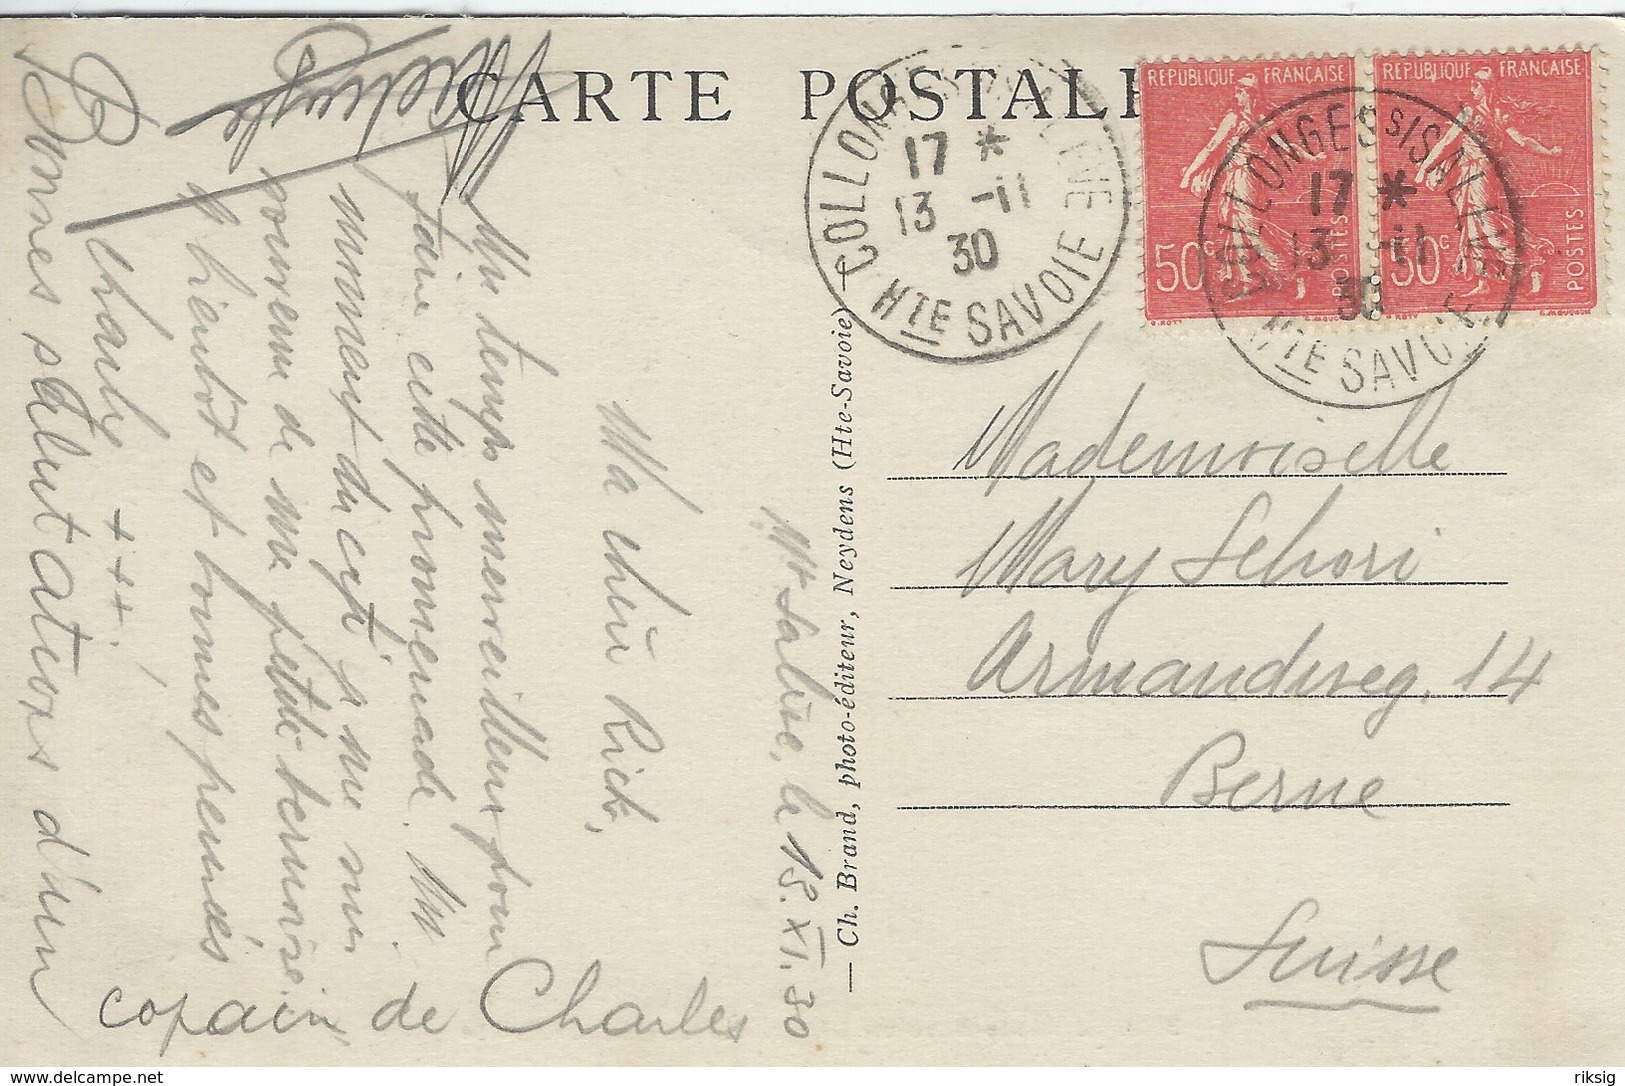 CARTE POSTALE
RÉPUBLIQUE FRANÇAISE
50c
POSTES
RÉPUBLIQUE FRANÇAISE
50c
POSTES
COLLONGES
17 *
13 -11
30
HTE SAVOIE
COLLONGES S/S SALÈVE
17 *
13 -11
30
HTE SAVOIE
Mt Salève, le 13. XI. 30
Ma chère Rick,
Un temps merveilleux pour
faire cette promenade. Un
moment du
souvenir de ma petite bernoise,
à bientôt et bonnes pensées
Charly +++!
Bonnes salutations d'un
copain de Charles
— Ch. Brand, photo-éditeur, Neydens (Hte-Savoie) —
Mademoiselle
Mary Schori
Armandweg, 14
Berne
Suisse
delcampe.net
riksig